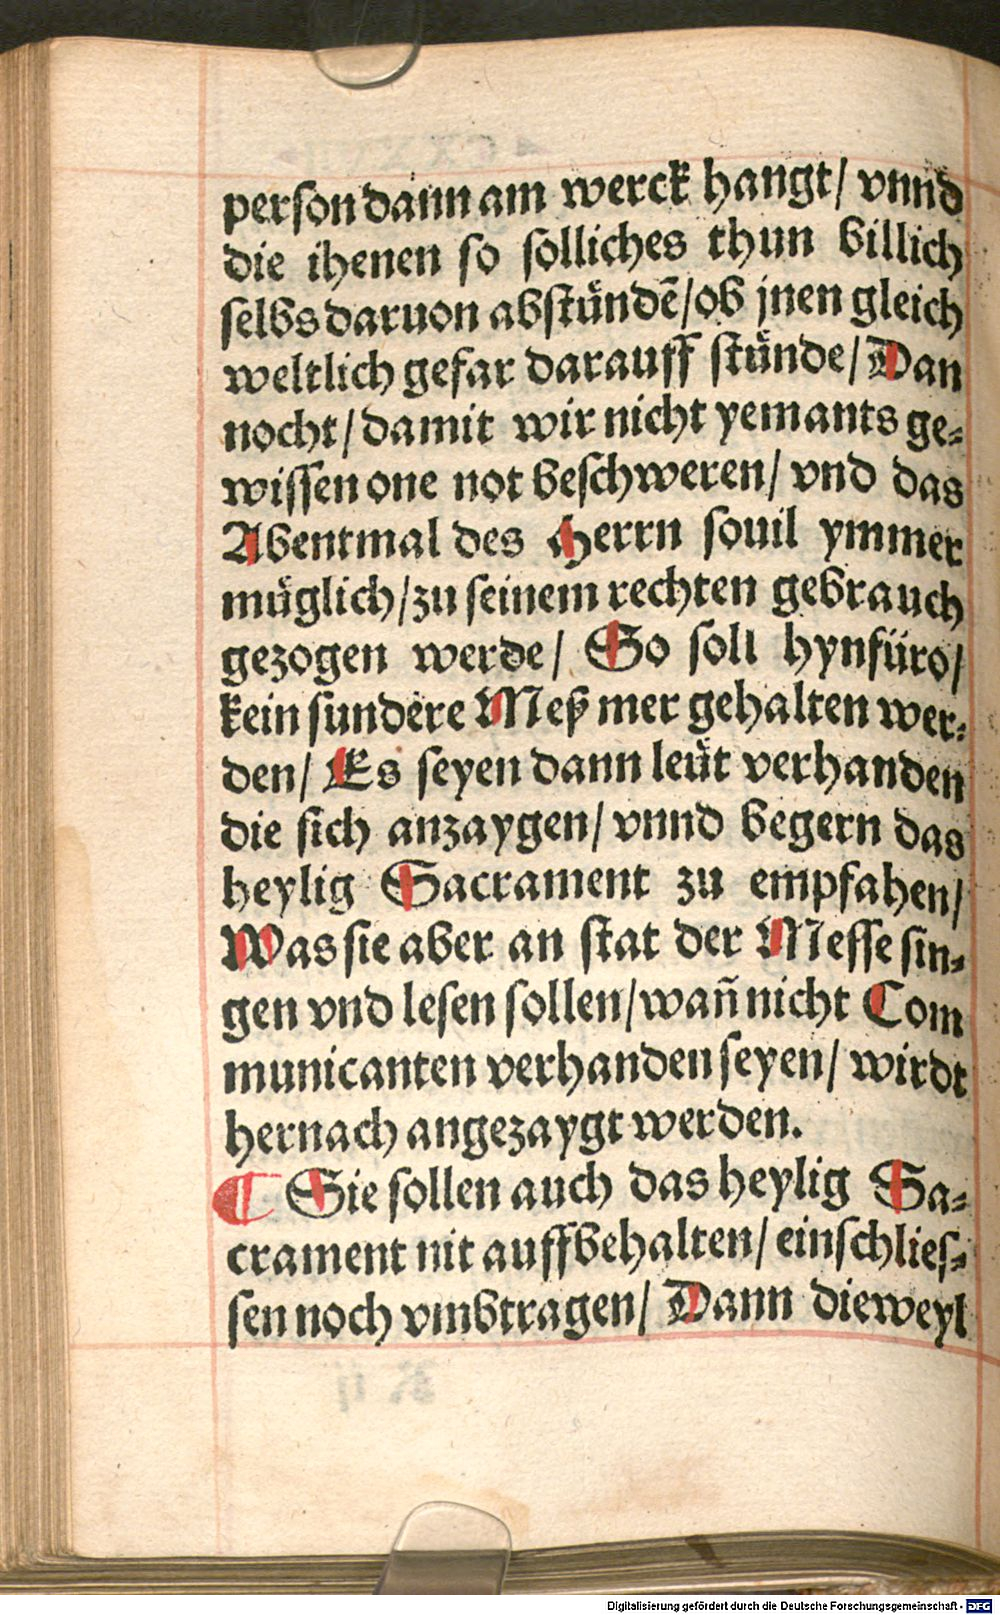 person dann am werck hangt/ vnnd
die ihenen so solliches thun billich
selbs daruon abstündē/ob jnen gleich
weltlich gefar darauff stünde/Dan
nocht/damit wir nicht yemants ge-
wissen one not beschweren/ vnd das
Abentmal des Herrn souil ymmer
müglich/zu seinem rechten gebrauch
gezogen werde/ So soll hynfüro/
kein sundere Meß mer gehalten wer-
den/ Es seyen dann leüt verhanden
die sich anzaygen/ vnnd begern das
heylig Sacrament zu empfahen/
Was sie aber an stat der Messe sin-
gen vnd lesen sollen/wañ nicht Com
municanten verhanden seyen/ wirdt
hernach angezaygt werden.
¶ Sie sollen auch das heylig Sa-
crament nit auffbehalten/ einschlies-
sen noch vmbtragen/ Dann dieweyl
Digitalisierung gefördert durch die Deutsche Forschungsgemeinschaft - DFG